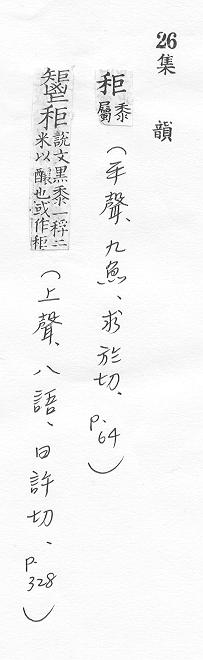 26 集韻
秬黍屬(平聲、九魚、求於切、p.64)
𩰤秬說文黑黍一稃二米以釀也或作秬(上聲、八語、臼許切、p.328)